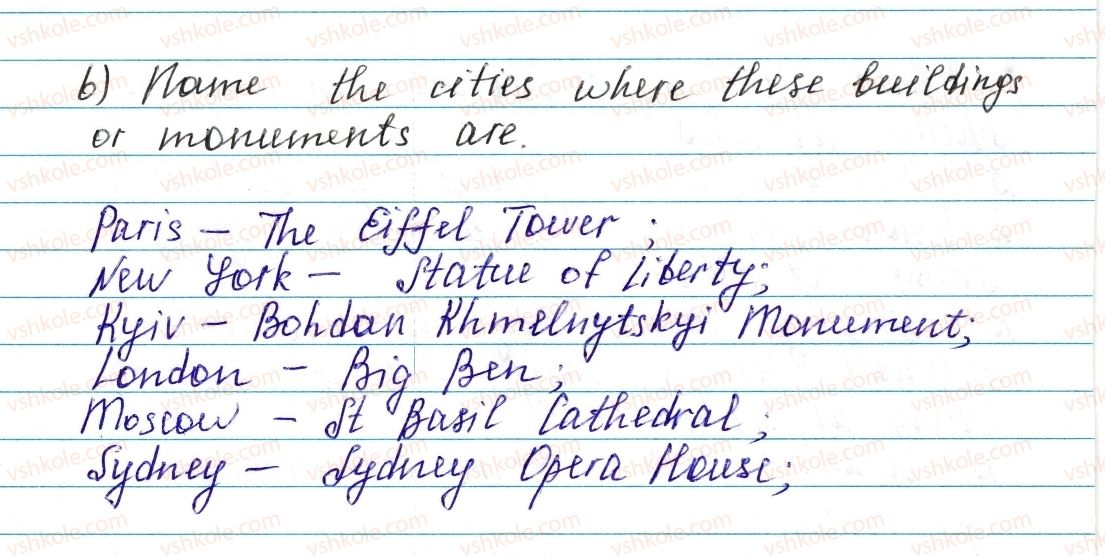 b) Name the cities where these buildings
or monuments are.
Paris – The Eiffel Tower ;
New York – Statue of Liberty;
Kyiv – Bohdan Khmelnytskyi Monument;
London – Big Ben ;
Moscow – St Basil Cathedral ;
Sydney – Sydney Opera House;